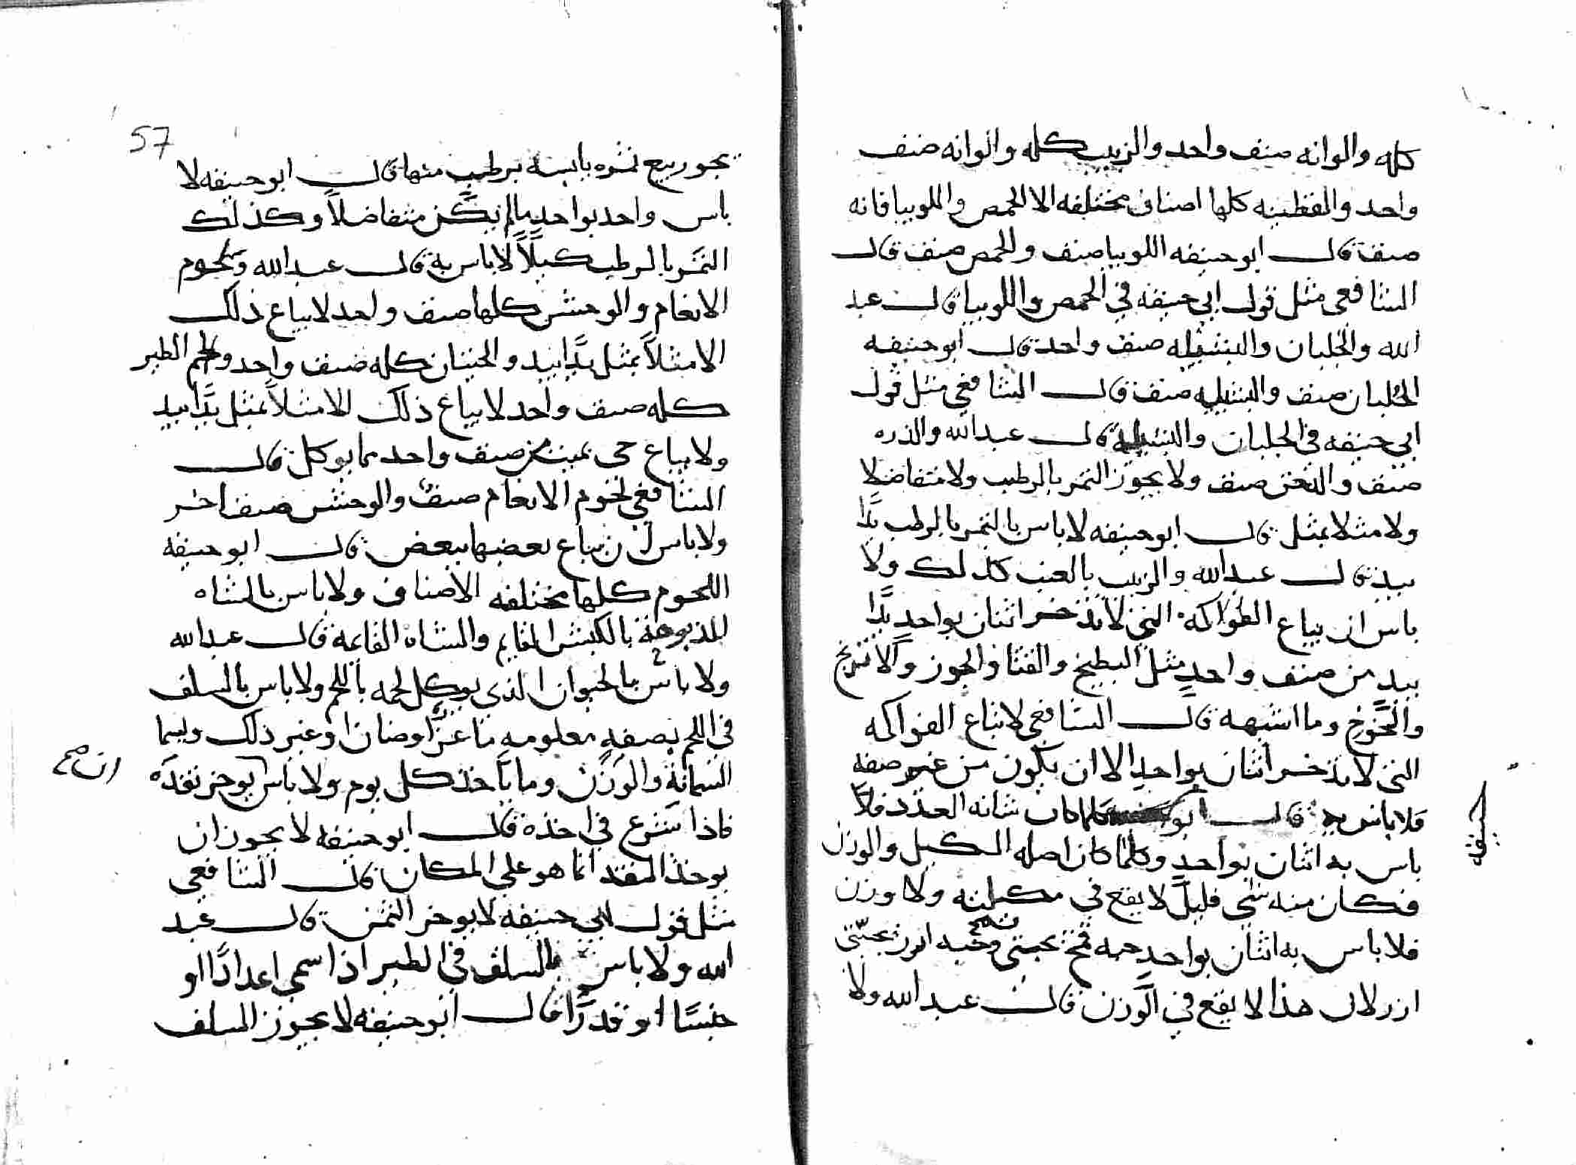 كله والوانه صنف واحد والزبيب كله والوانه صنف
واحد والقطنيه كلها اصناف مختلفه الا الحمص واللوبيا فانه
صنف قال ابو حنيفه اللوبيا صنف والحمص صنف قال
الشافعي مثل قول ابي حنيفه في الحمص واللوبيا قال عبد
الله والجلبان والبسيله صنف واحد قال ابو حنيفه
الجلبان صنف والبسيله صنف قال الشافعي مثل قول
ابي حنيفه في الجلبان والبسيله قال عبد الله والذره
صنف والدخن صنف ولا يجوز التمر بالرطب ولا متفاضلا
ولا مثلا بمثل قال ابو حنيفه لا باس بالتمر بالرطب يدًا
بيد قال عبد الله والزبيب بالعنب كذلك ولا
باس ان يباع الفواكه التي لا تدخر اثنان بواحدٍ يدًا
بيدٍ من صنف واحدٍ مثل البطيخ والقثا والجوز والاترنج
والخَوْخ وما اشبهه قال الشافعي لا تباع الفواكه
التي لا تدخر اثنان بواحدٍ الا ان يكون من غير صنفه
فلا باس به قال ابو فلما كان شانه العدد فلا
حنيفه
باس به اثنان بواحدٍ وكلما كان اصله الكيل والوزن
فكان منه شي قليل لا يقع في مكيلته ولا وزن
فلا باس به اثنان بواحد حبه قمح بحبتي قمح وحبه ارز بحبتي
ارز لان هذا لا يقع في الوزن قال عبد الله ولا
57
يجوز بيع تمره يابسة برطب منها قال ابو حنيفه لا
باس واحد بواحدٍ ما لم يكن متفاضلاً وكذلك
التمر بالرطب كيلاً لا باس به قال عبد الله ولحوم
الانعام والوحش كلها صنف واحد لا يباع ذلك
الا مثلاً بمثل يدًا بيد والحيتان كله صنف واحد ولحم الطير
كله صنف واحد لا يباع ذلك الا مثلاً بمثل يدًا بيد
ولا يباع حي بميت من صنف واحد مما يوكل قال
الشافعي لحوم الانعام صنف والوحش صنف اخر
ولا باس ان يباع بعضها ببعض قال ابو حنيفه
اللحوم كلها مختلفه الاصناف ولا باس بالشاه
المذبوحة بالكبش القايم والشاه القائمة قال عبد الله
ولا باس بالحيوان الذي يوكل لحمه باللحم ولا باس بالسلف
في اللحم بصفه معلومه ماعزًا وضان او غير ذلك ويسما
السمانة والوزن وما ياخذ كل يوم ولا باس يوخر نقده
ان صح
فاذا شرع في اخذه قال ابو حنيفه لا يجوز ان
يوخذ النقد انما هو على المكان قال الشافعي
مثل قول ابي حنيفه لا يوخر الثمن قال عبد
الله ولا باس بالسلف في الطير اذا سمي اعدادًا او
جنسًا او قدرًا قال ابو حنيفه لا يجوز السلف